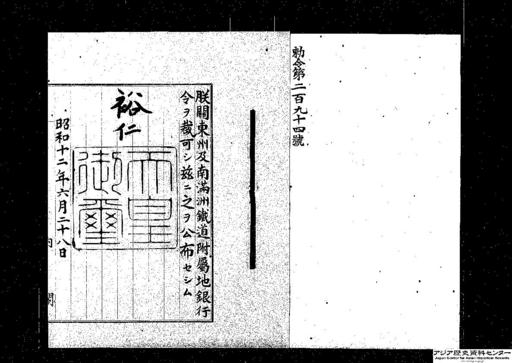 勅令第二百九十四號
朕關東州及南滿洲鐵道附屬地銀行
令ヲ裁可シ茲ニ之ヲ公布セシム
裕仁
天皇御璽
昭和十二年六月二十八日
内閣
アジア歴史資料センター
Japan Center for Asian Historical Records